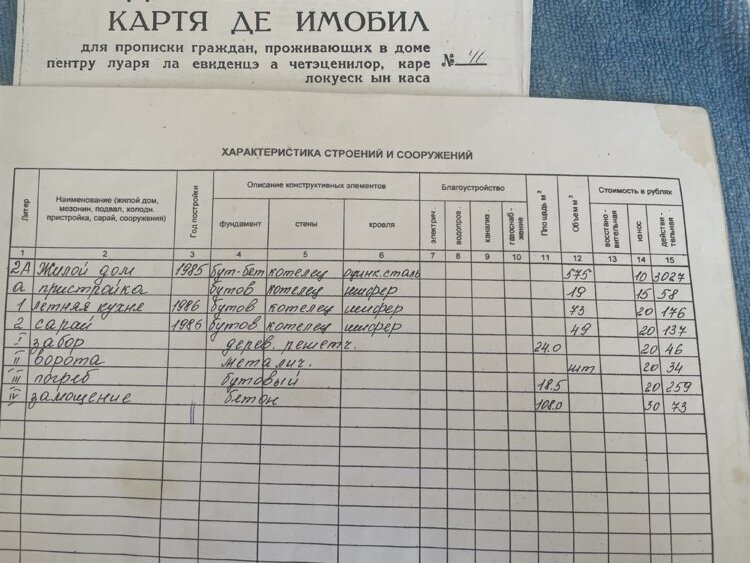 КАРТЯ ДЕ ИМОБИЛ
для прописки граждан, проживающих в доме
пентру луаря ла евиденцэ а четэценилор, каре
локуеск ын каса
№ 41
ХАРАКТЕРИСТИКА СТРОЕНИЙ И СООРУЖЕНИЙ
Литер
Наименование (жилой дом,
мезонин, подвал, холодн.
пристройка, сарай, сооружения)
Год постройки
Описание конструктивных элементов
фундамент
стены
кровля
Благоустройство
электрич.
водопров.
канализ.
газоснаб-
жение
Площадь м²
Объем м³
Стоимость в рублях
восстано-
вительная
износ
действи-
тельная
1 2 3 4 5 6 7 8 9 10 11 12 13 14 15
2А Жилой дом 1985 бут-бет котелец оцинк.сталь 575 10 3027
а пристройка бутов котелец шифер 19 15 58
1 летная кухне 1986 бутов котелец шифер 73 20 176
2 сарай 1986 бутов котелец шифер 49 20 137
I забор дерев. решетч. 24.0 20 46
II ворота металич. шт 20 34
III погреб бутовый 18.5 20 259
IV замощение бетон 108.0 30 73